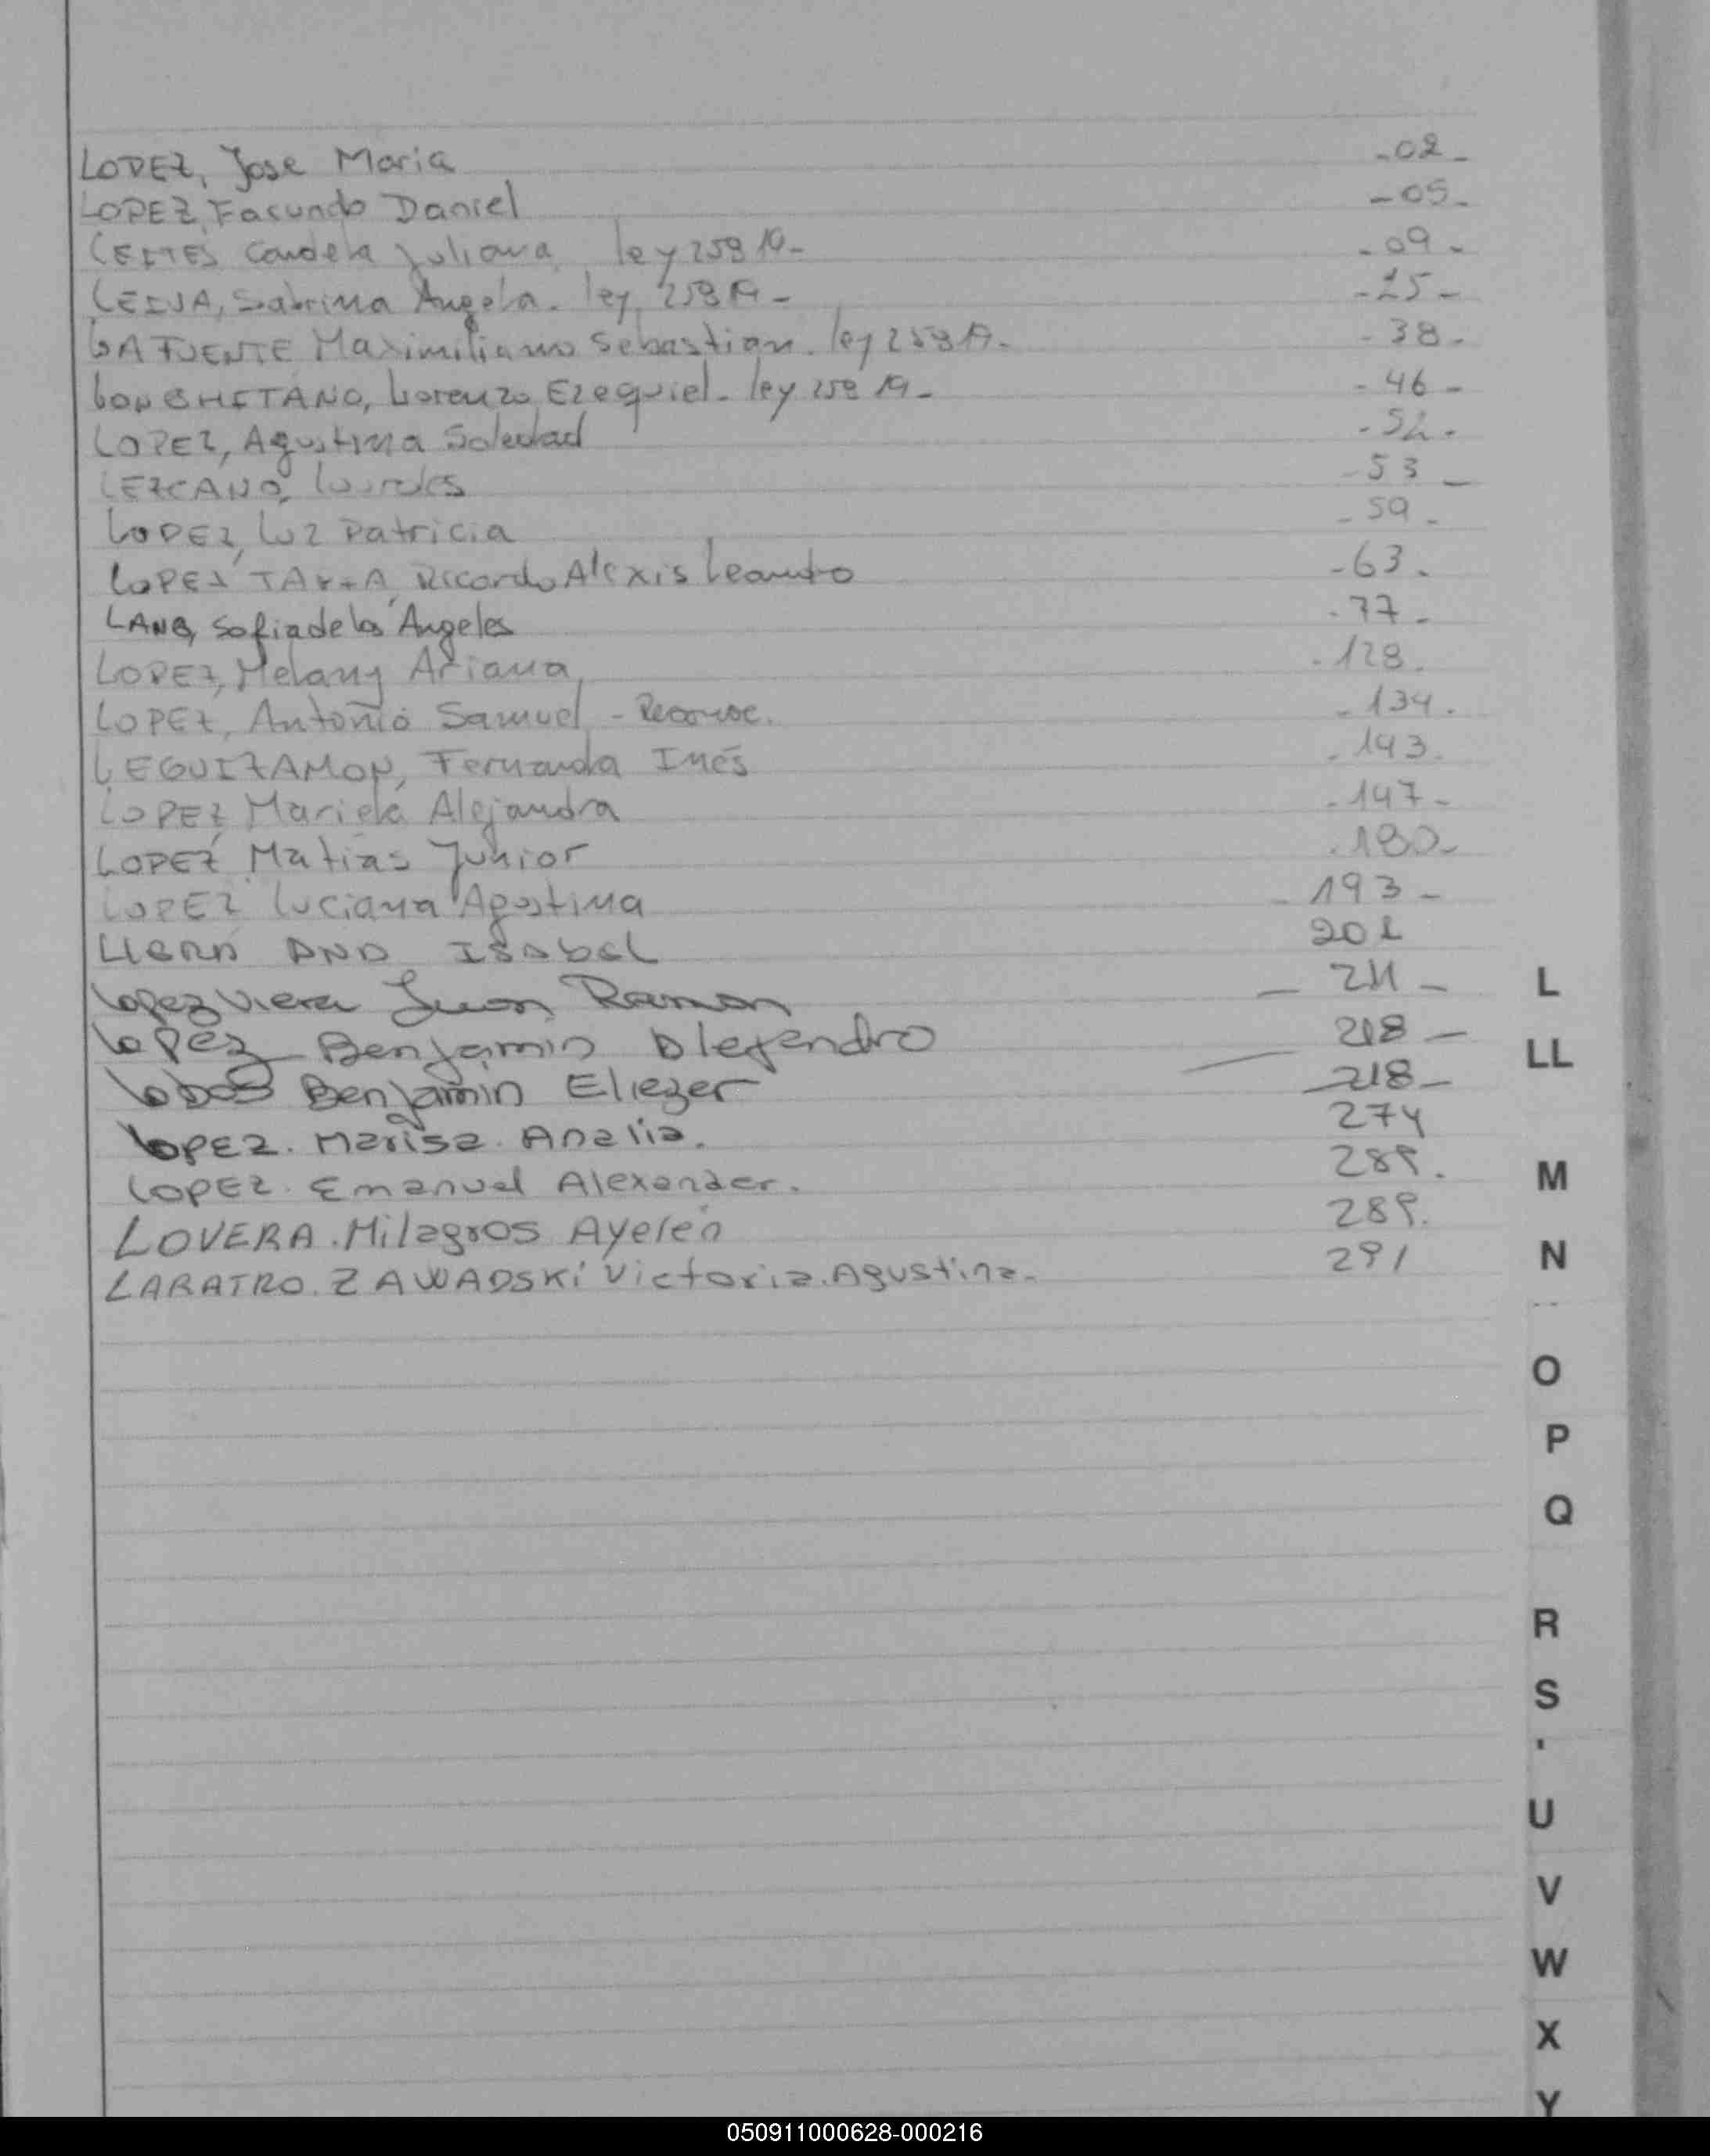 LOPEZ, Jose Maria -02-
LOPEZ, Facundo Daniel -05-
LEITES Candela Juliana, ley 25919- -09-
LEIVA, Sabrina Angela. ley, 25919- -25-
LAFUENTE Maximiliano Sebastian. ley 25919- -38-
Lorenzo Ezequiel- ley 25919- -46-
LOPEZ, Agustina Soledad -52-
LEZCANO, Lourdes -53-
LOPEZ, Luz Patricia -59-
LOPEZ Ricardo Alexis Leandro -63-
LANG, Sofia de los Angeles -77-
LOPEZ, Melany Ariana -128-
LOPEZ, Antonio Samuel - Reconoc. -134-
LEGUIZAMON, Fernanda Inés -143-
LOPEZ Mariela Alejandra -147-
LOPEZ Matias Junior -180-
LOPEZ Luciana Agostina - 193 -
ANA ISABEL 202
Lopez Viera Juan Ramon - 211 -
Lopez Benjamin Alejandro 218 -
Lobos Benjamin Eliezer - 218 -
LOPEZ. Marisa. Analia. 274
LOPEZ. Emanuel Alexander. 289.
LOVERA. Milagros Ayelén 289.
LABATRO. ZAWADSKi Victoria. Agustina. 291
L
LL
M
N
O
P
Q
R
S
U
V
W
X
Y
050911000628-000216